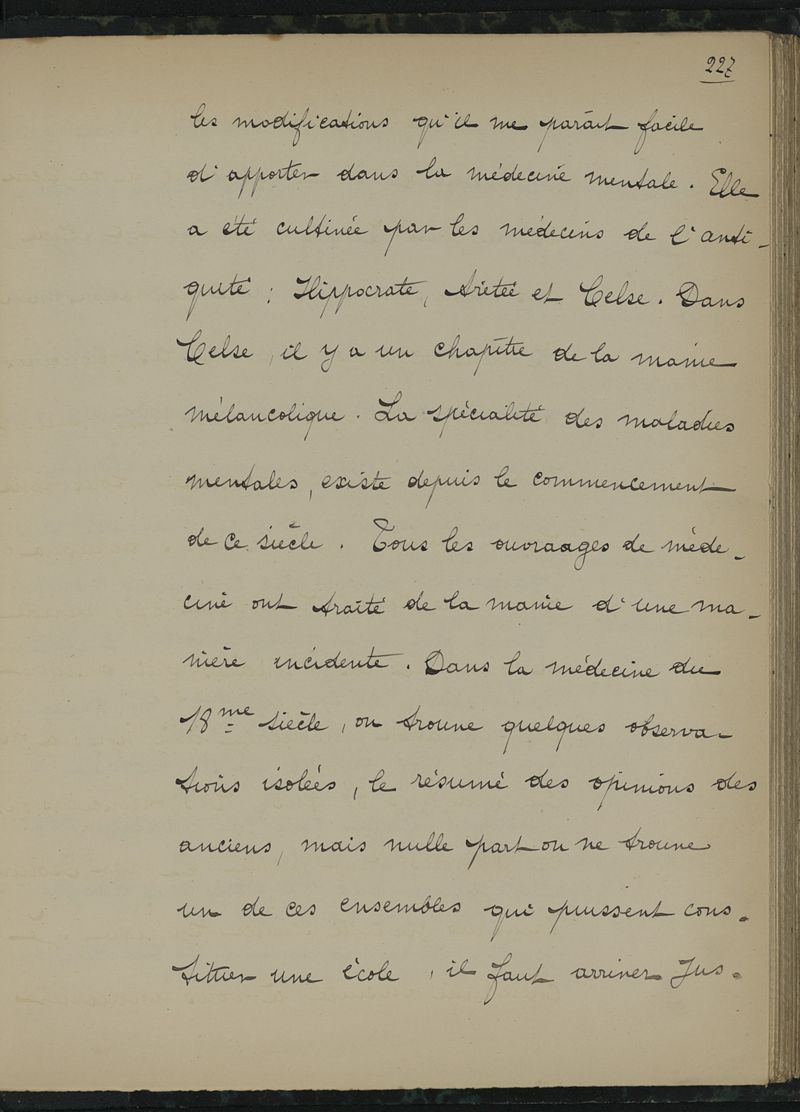 227
les modifications qu'il me paraît facile
d'apporter dans la médecine mentale. Elle
a été cultivée par les médecins de l'anti-
quité ; Hippocrate, Arétée et Celse. Dans
Celse, il y a un chapître de la manie
mélancolique. La spécialité des maladies
mentales, existe depuis le commencement
de ce siècle. Tous les ouvraages de méde-
cine ont traîté de la manie d'une ma-
nière incidente. Dans la médecine du
18me siècle, on trouve quelques observa-
tions isolées, le résumé des opinions des
anciens, mais nulle part on ne trouve
un de ces ensembles qui puissent cons-
tituer une école, il faut arriver jus-